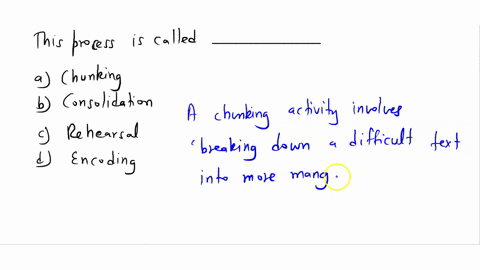 This process is called __________
a) Chunking
b) Consolidation
c) Rehearsal
d) Encoding
A chunking activity involves
'breaking down a difficult text
into more mang.